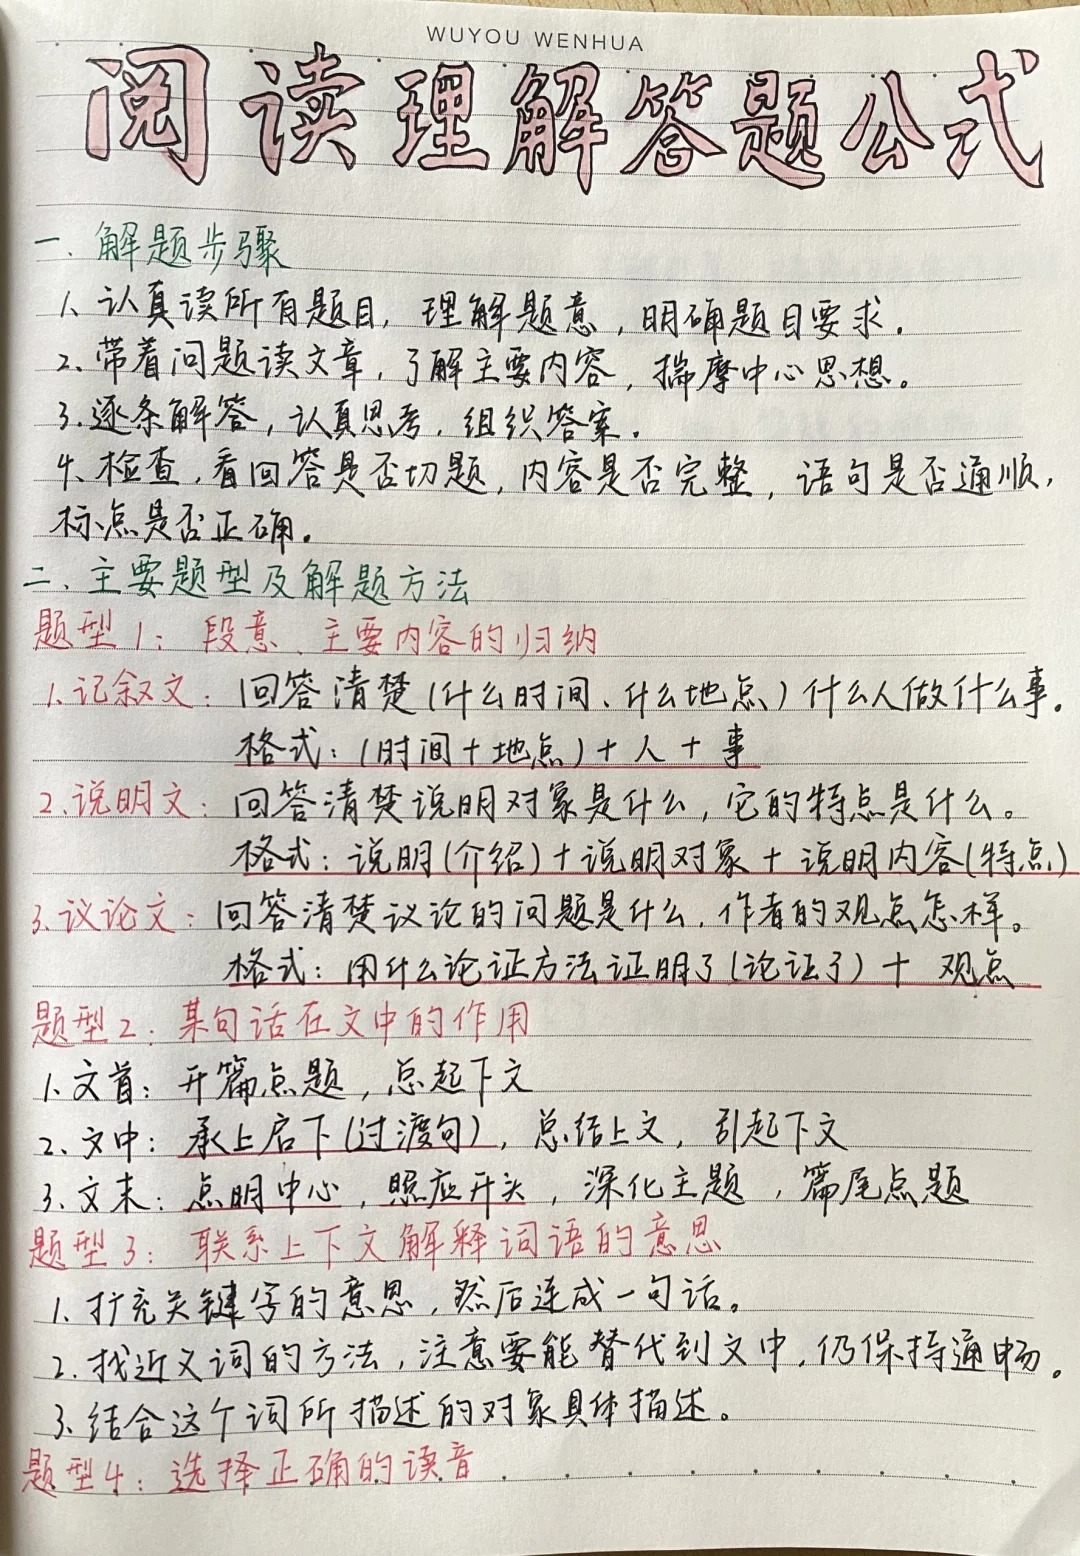 WUYOU WENHUA
阅读理解答题公式
一、解题步骤
1、认真读所有题目，理解题意，明确题目要求。
2、带着问题读文章，了解主要内容，揣摩中心思想。
3、逐条解答，认真思考，组织答案。
4、检查，看回答是否切题，内容是否完整，语句是否通顺，
标点是否正确。
二、主要题型及解题方法
题型1：段意、主要内容的归纳
1、记叙文：回答清楚(什么时间、什么地点)什么人做什么事。
格式：(时间+地点)+人+事
2、说明文：回答清楚说明对象是什么，它的特点是什么。
格式：说明(介绍)+说明对象+说明内容(特点)
3、议论文：回答清楚议论的问题是什么，作者的观点怎样。
格式：用什么论证方法证明了(论证了)+观点
题型2：某句话在文中的作用
1、文首：开篇点题，总起下文
2、文中：承上启下(过渡句)，总结上文，引起下文
3、文末：点明中心，照应开头，深化主题，篇尾点题
题型3：联系上下文解释词语的意思
1、扩充关键字的意思，然后连成一句话。
2、找近义词的方法，注意要能替代到文中，仍保持通畅。
3、结合这个词所描述的对象具体描述。
题型4：选择正确的读音